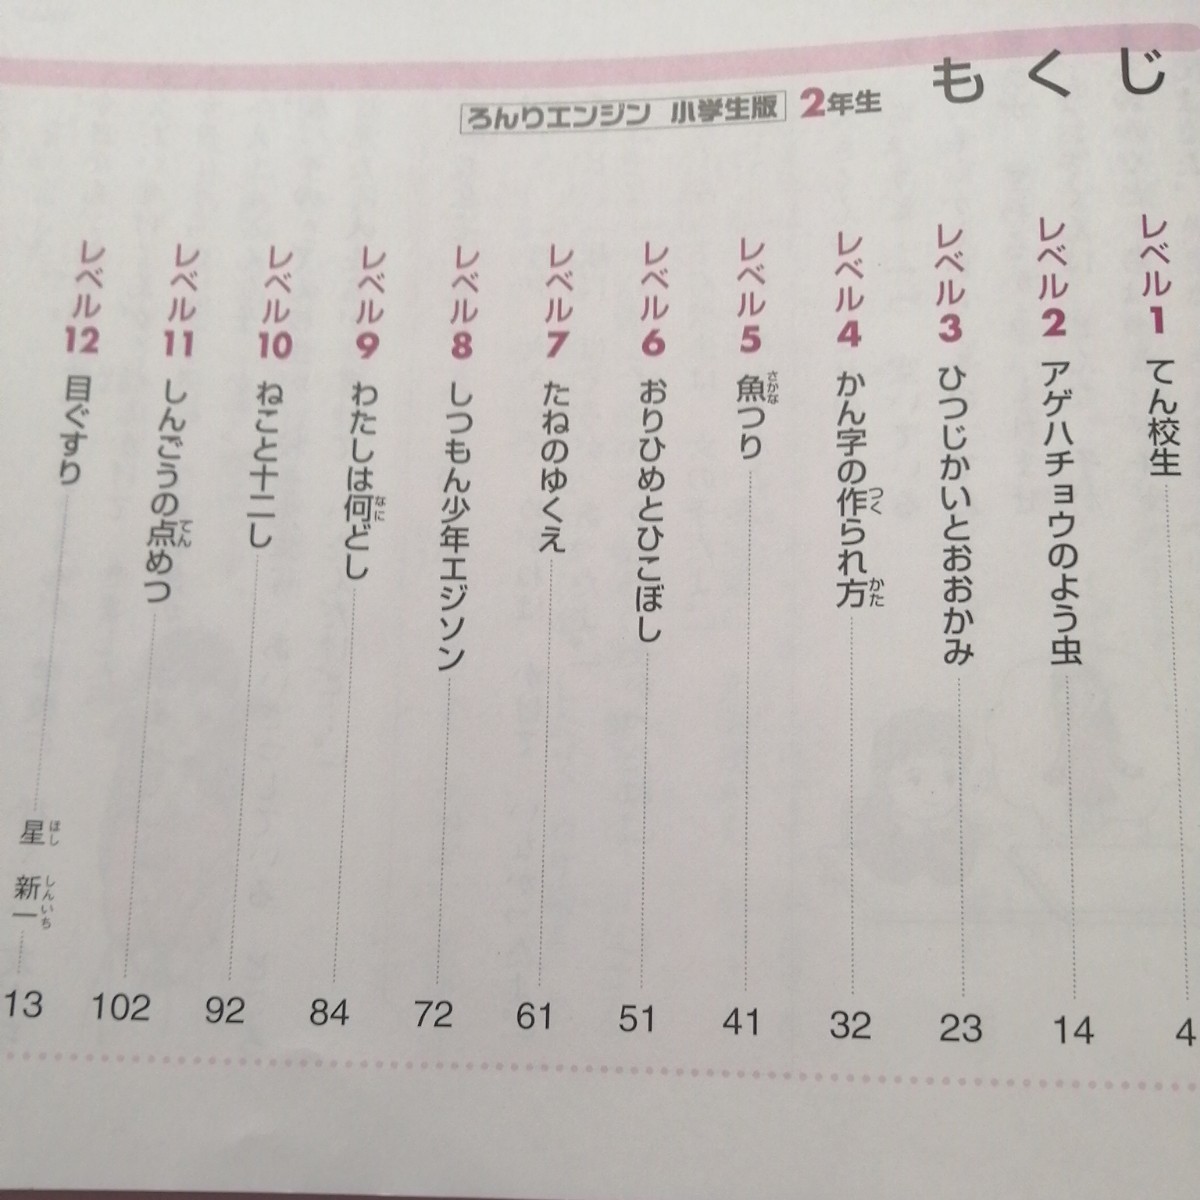 もくじ
ろんりエンジン 小学生版 2年生
レベル1 てん校生 4
レベル2 アゲハチョウのよう虫 14
レベル3 ひつじかいとおおかみ 23
レベル4 かん字の作られ方 32
つく
かた
レベル5 魚つり 41
さかな
レベル6 おりひめとひこぼし 51
レベル7 たねのゆくえ 61
レベル8 しつもん少年エジソン 72
レベル9 わたしは何どし 84
なに
レベル10 ねこと十二し 92
レベル11 しんごうの点めつ 102
てん
レベル12 目ぐすり 星 新一 13
ほし
しんいち